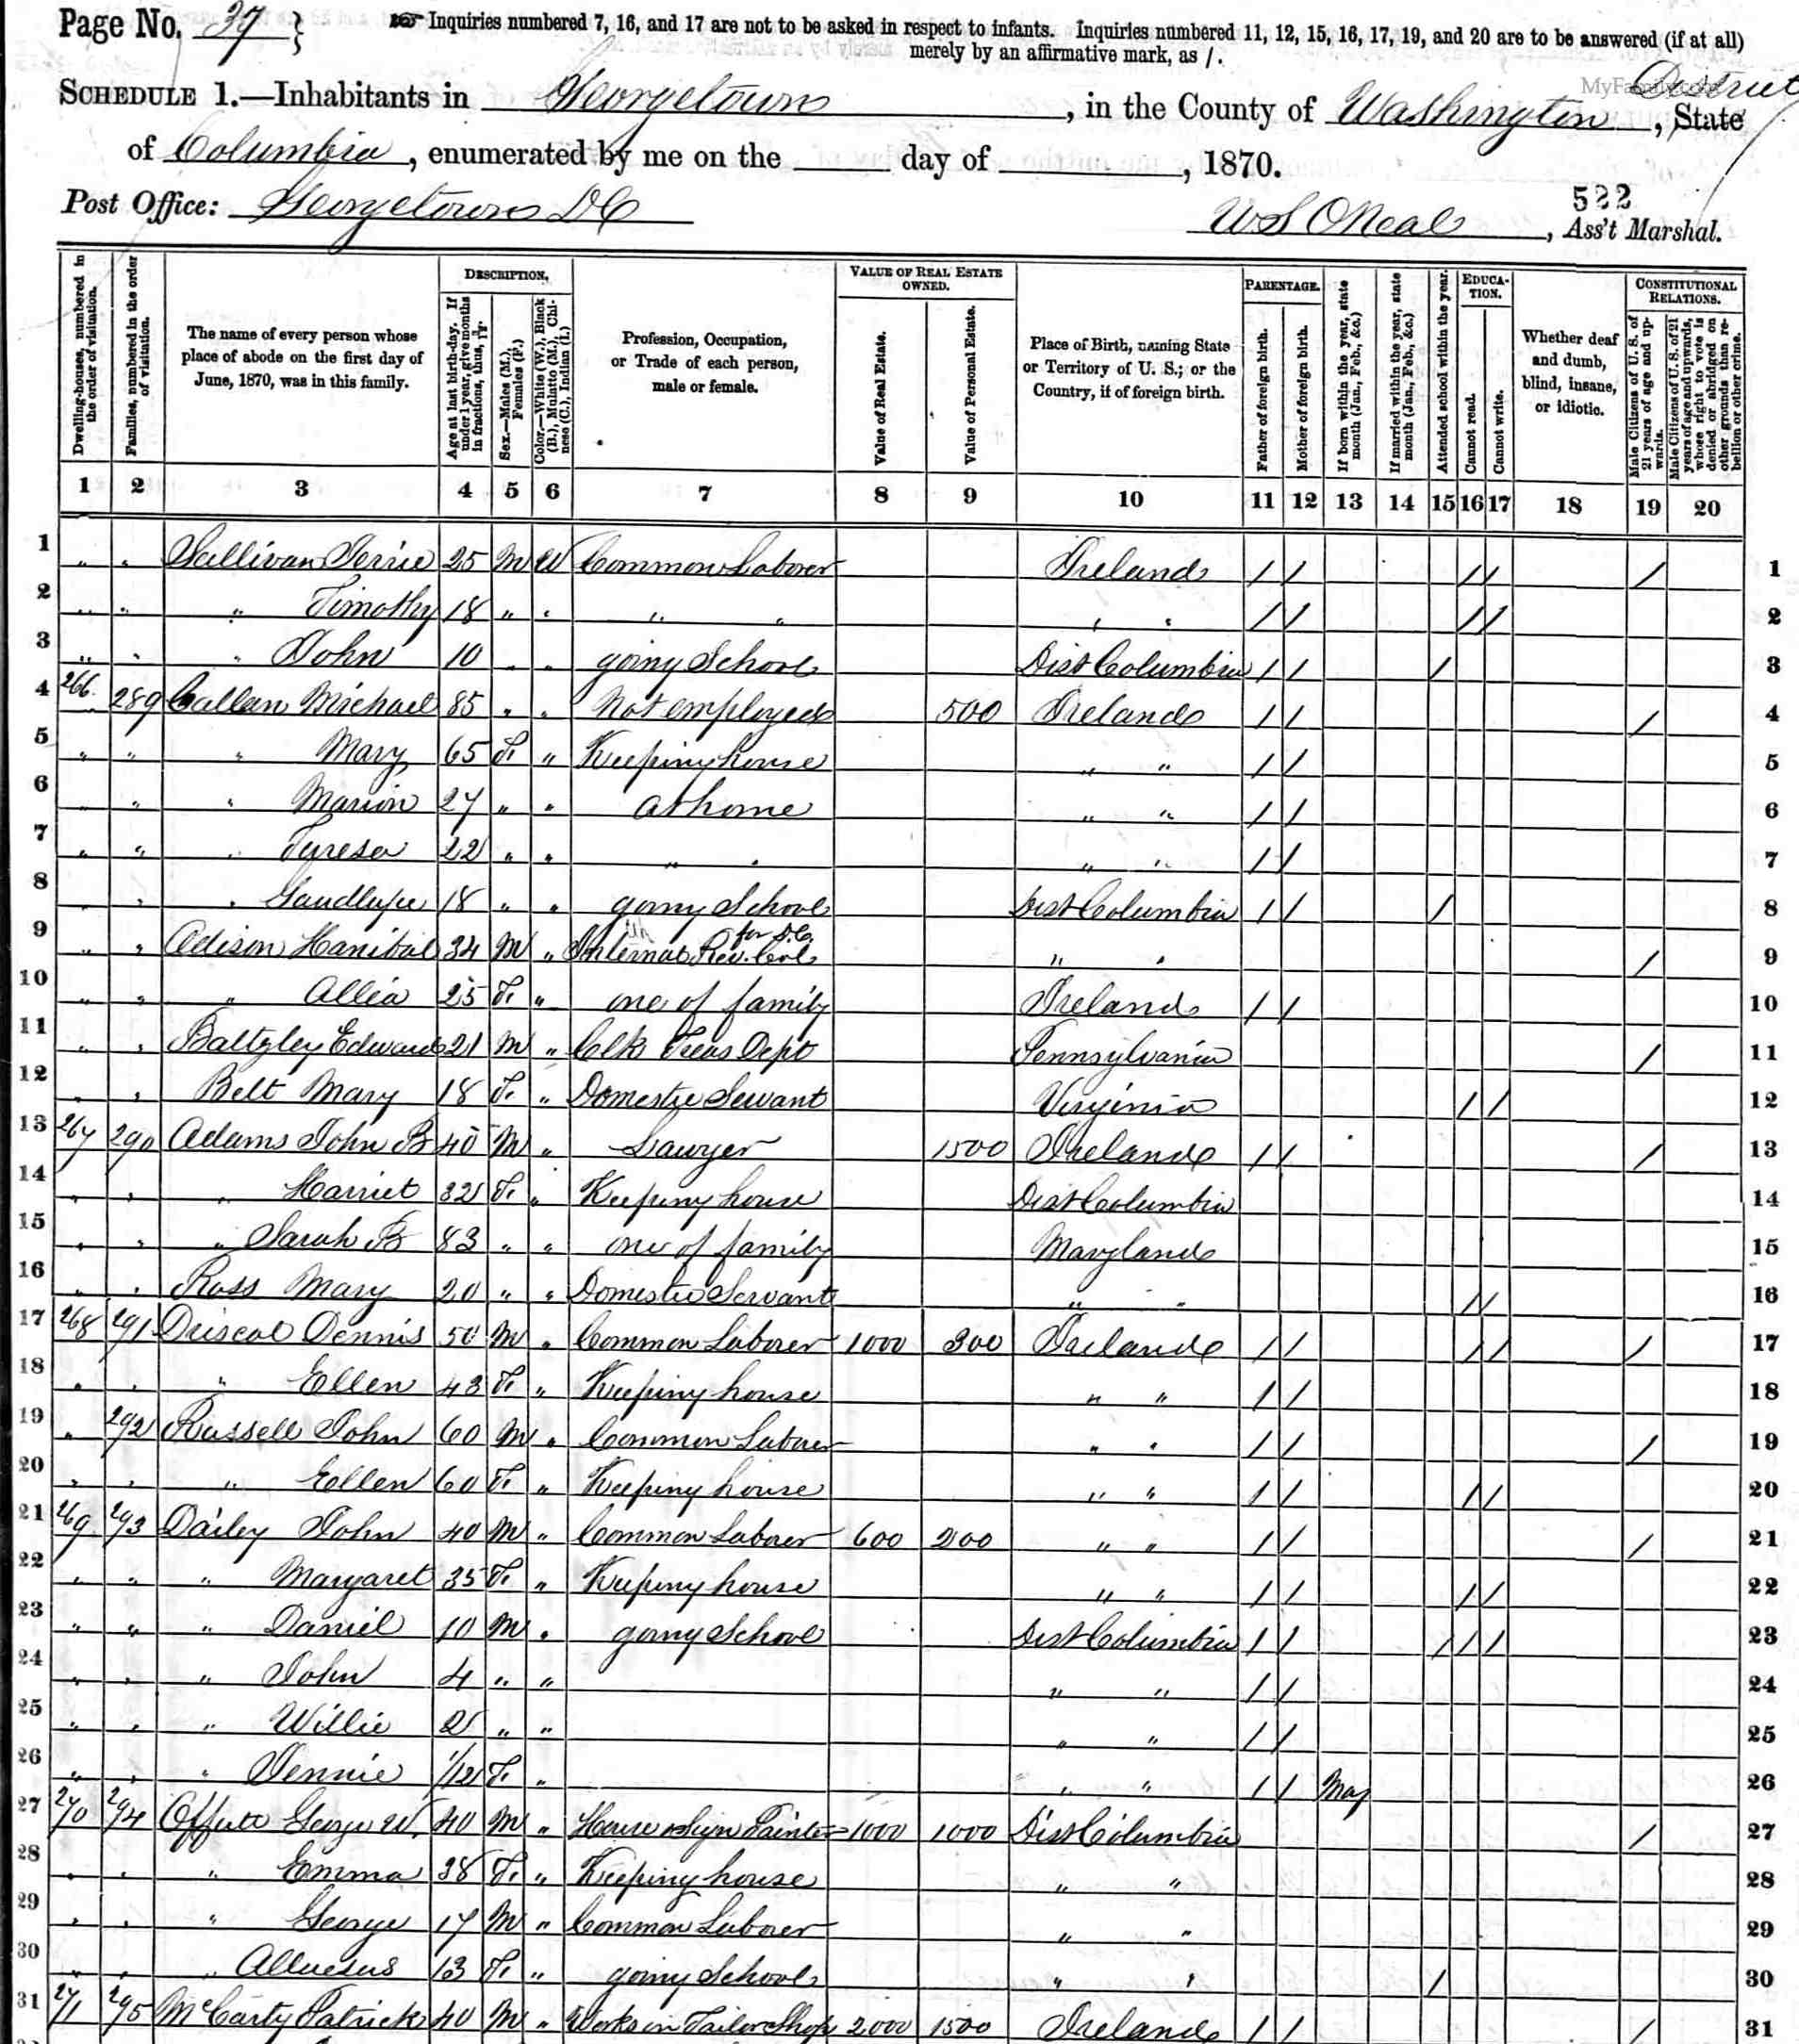 Page No. 37 } Inquiries numbered 7, 16, and 17 are not to be asked in respect to infants. Inquiries numbered 11, 12, 15, 16, 17, 19, and 20 are to be answered (if at all)
merely by an affirmative mark, as /.
MyFamily.com
SCHEDULE 1.—Inhabitants in Georgetown, in the County of Washington, State District
of Columbia, enumerated by me on the ___ day of ___, 1870.
Post Office: Georgetown DC W S ONeal, Ass't Marshal.
522
Dwelling-houses, numbered in the order of visitation.
Families, numbered in the order of visitation.
The name of every person whose place of abode on the first day of June, 1870, was in this family.
DESCRIPTION.
Age at last birth-day. If under 1 year, give months in fractions, thus, 3/12.
Sex.—Males (M.), Females (F.)
Color.—White (W.), Black (B.), Mulatto (M.), Chinese (C.), Indian (I.)
Profession, Occupation, or Trade of each person, male or female.
VALUE OF REAL ESTATE OWNED.
Value of Real Estate.
Value of Personal Estate.
Place of Birth, naming State or Territory of U. S.; or the Country, if of foreign birth.
PARENTAGE.
Father of foreign birth.
Mother of foreign birth.
If born within the year, state month (Jan., Feb., &c.)
If married within the year, state month (Jan., Feb., &c.)
Attended school within the year.
EDUCATION.
Cannot read.
Cannot write.
Whether deaf and dumb, blind, insane, or idiotic.
CONSTITUTIONAL RELATIONS.
Male Citizens of U. S. of 21 years of age and upwards.
Male Citizens of U. S. of 21 years of age and upwards, whose right to vote is denied or abridged on other grounds than rebellion or other crime.
1 2 3 4 5 6 7 8 9 10 11 12 13 14 15 16 17 18 19 20
1 " " Sullivan 25 M W Common Laborer Ireland / / / / / 1
2 " " " Timothy 18 " " " " " " / / / / 2
3 " " " John 10 " " going School Dist Columbia / / / 3
4 266 289 Callan Michael 85 " " Not employed 500 Ireland / / / 4
5 " " " Mary 65 F " Keeping house " " / / 5
6 " " " Marion 27 " " at home " " / / 6
7 " " " Tyresa 22 " " " " " " / / 7
8 " " " 18 " " going School Dist Columbia / / / 8
9 " " Adison Hanibal 34 M " Internal Rev. Col for D.C. " " / 9
10 " " " Allia 25 F " one of family Ireland / / 10
11 " " Baltzley Edward 21 M " Clk Treas Dept Pennsylvania / 11
12 " " Belt Mary 18 F " Domestic Servant Virginia / / 12
13 267 290 Adams John B 40 M " Lawyer 1500 Ireland / / / 13
14 " " " Harriet 32 F " Keeping house Dist Columbia 14
15 " " " Sarah B 83 " " one of family Maryland 15
16 " " Ross Mary 20 " " Domestic Servant " " / / 16
17 268 291 Driscol Dennis 50 M " Common Laborer 1000 300 Ireland / / / / / 17
18 " " " Ellen 43 F " Keeping house " " / / 18
19 " 292 Russell John 60 M " Common Laborer " " / / / 19
20 " " " Ellen 60 F " Keeping house " " / / / / 20
21 269 293 Dailey John 40 M " Common Laborer 600 200 " " / / / 21
22 " " " Margaret 35 F " Keeping house " " / / / / 22
23 " " " Daniel 10 M " going School Dist Columbia / / / / / 23
24 " " " John 4 " " " " / / 24
25 " " " Willie 2 " " " " / / 25
26 " " " Jennie 1/12 F " " " / / May 26
27 270 294 Offutt George W. 40 M " House & Sign Painter 1000 1000 Dist Columbia / 27
28 " " " Emma 38 F " Keeping house " " 28
29 " " " George 17 M " Common Laborer " " 29
30 " " " 13 F " going School " " / 30
31 271 295 McCarty Patrick 40 M " Works in Tailor Shop 2000 1500 Ireland / / / 31